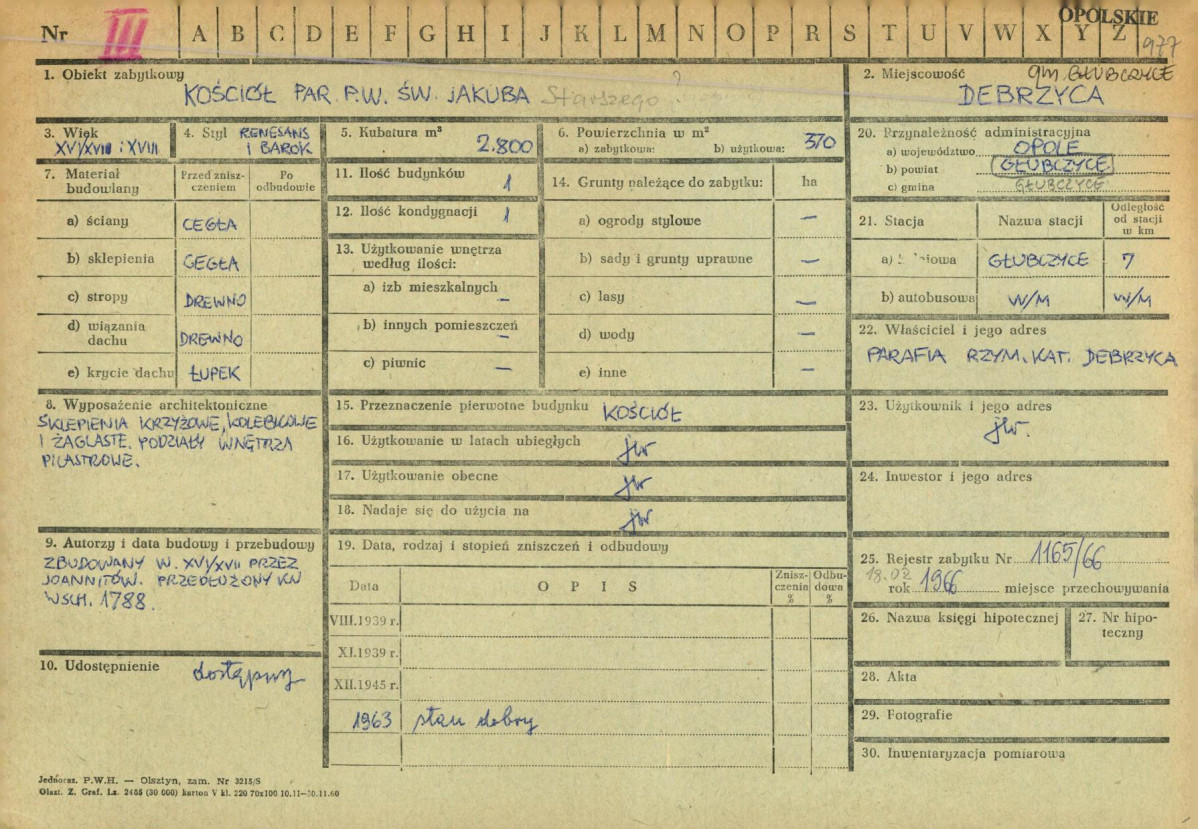 Nr III A B C D E F G H I J K L M N O P R S T U V W X Y Z
OPOLSKIE
977
1. Obiekt zabytkowy
KOŚCIÓŁ PAR. P.W. ŚW. JAKUBA Starszego ?
2. Miejscowość gm. GŁUBCZYCE
DEBRZYCA
3. Wiek
XVI/XVII i XVIII
4. Styl RENESANS
I BAROK
5. Kubatura m³
2.800
6. Powierzchnia w m²
a) zabytkowa: b) użytkowa: 370
20. Przynależność administracyjna
a) województwo OPOLE
b) powiat GŁUBCZYCE
c) gmina GŁUBCZYCE
7. Materiał budowlany
Przed zniszczeniem
Po odbudowie
a) ściany CEGŁA
b) sklepienia CEGŁA
c) stropy DREWNO
d) wiązania dachu DREWNO
e) krycie dachu ŁUPEK
11. Ilość budynków 1
12. Ilość kondygnacji 1
13. Użytkowanie wnętrza
według ilości:
a) izb mieszkalnych —
b) innych pomieszczeń —
c) piwnic —
14. Grunty należące do zabytku: ha
a) ogrody stylowe —
b) sady i grunty uprawne —
c) lasy —
d) wody —
e) inne —
21. Stacja Nazwa stacji Odległość od stacji w km
a) GŁUBCZYCE 7
b) autobusowa W/M W/M
22. Właściciel i jego adres
PARAFIA RZYM. KAT. DEBRZYCA
8. Wyposażenie architektoniczne
SKLEPIENIA KRZYŻOWE, KOLEBKOWE
I ŻAGLASTE. PODZIAŁY WNĘTRZA
PILASTROWE.
15. Przeznaczenie pierwotne budynku KOŚCIÓŁ
16. Użytkowanie w latach ubiegłych jw
17. Użytkowanie obecne jw
18. Nadaje się do użycia na jw
23. Użytkownik i jego adres
jw.
24. Inwestor i jego adres
9. Autorzy i data budowy i przebudowy
ZBUDOWANY W. XVI/XVII PRZEZ
JOANNITÓW. PRZEDŁUŻONY KN
WSCH. 1788.
10. Udostępnienie dostępny
19. Data, rodzaj i stopień zniszczeń i odbudowy
Data O P I S Zniszczenia % Odbudowa %
VIII.1939 r.
XI.1939 r.
XII.1945 r.
1963 stan dobry
25. Rejestr zabytku Nr 1165/66
18.02
rok 1966 miejsce przechowywania
26. Nazwa księgi hipotecznej
27. Nr hipoteczny
28. Akta
29. Fotografie
30. Inwentaryzacja pomiarowa
Jednoraz. P.W.H. — Olsztyn, zam. Nr 3215/S
Olszt. Z. Graf. Lz. 2455 (30 000) karton V kl. 220 70x100 10.11—30.11.60